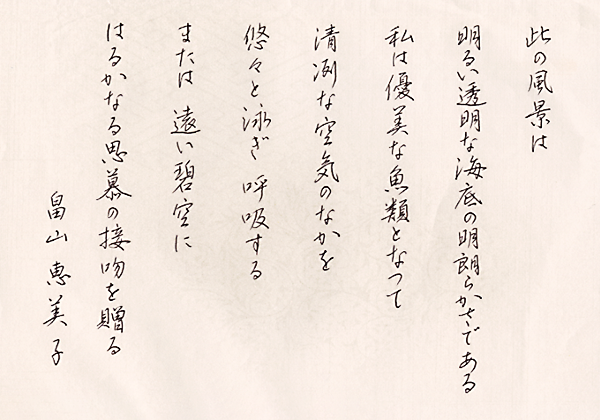 此の風景は
明るい透明な海底の明朗らかさである
私は優美な魚類となつて
清冽な空気のなかを
悠々と泳ぎ呼吸する
または遠い碧空に
はるかなる思慕の接吻を贈る
畠山恵美子